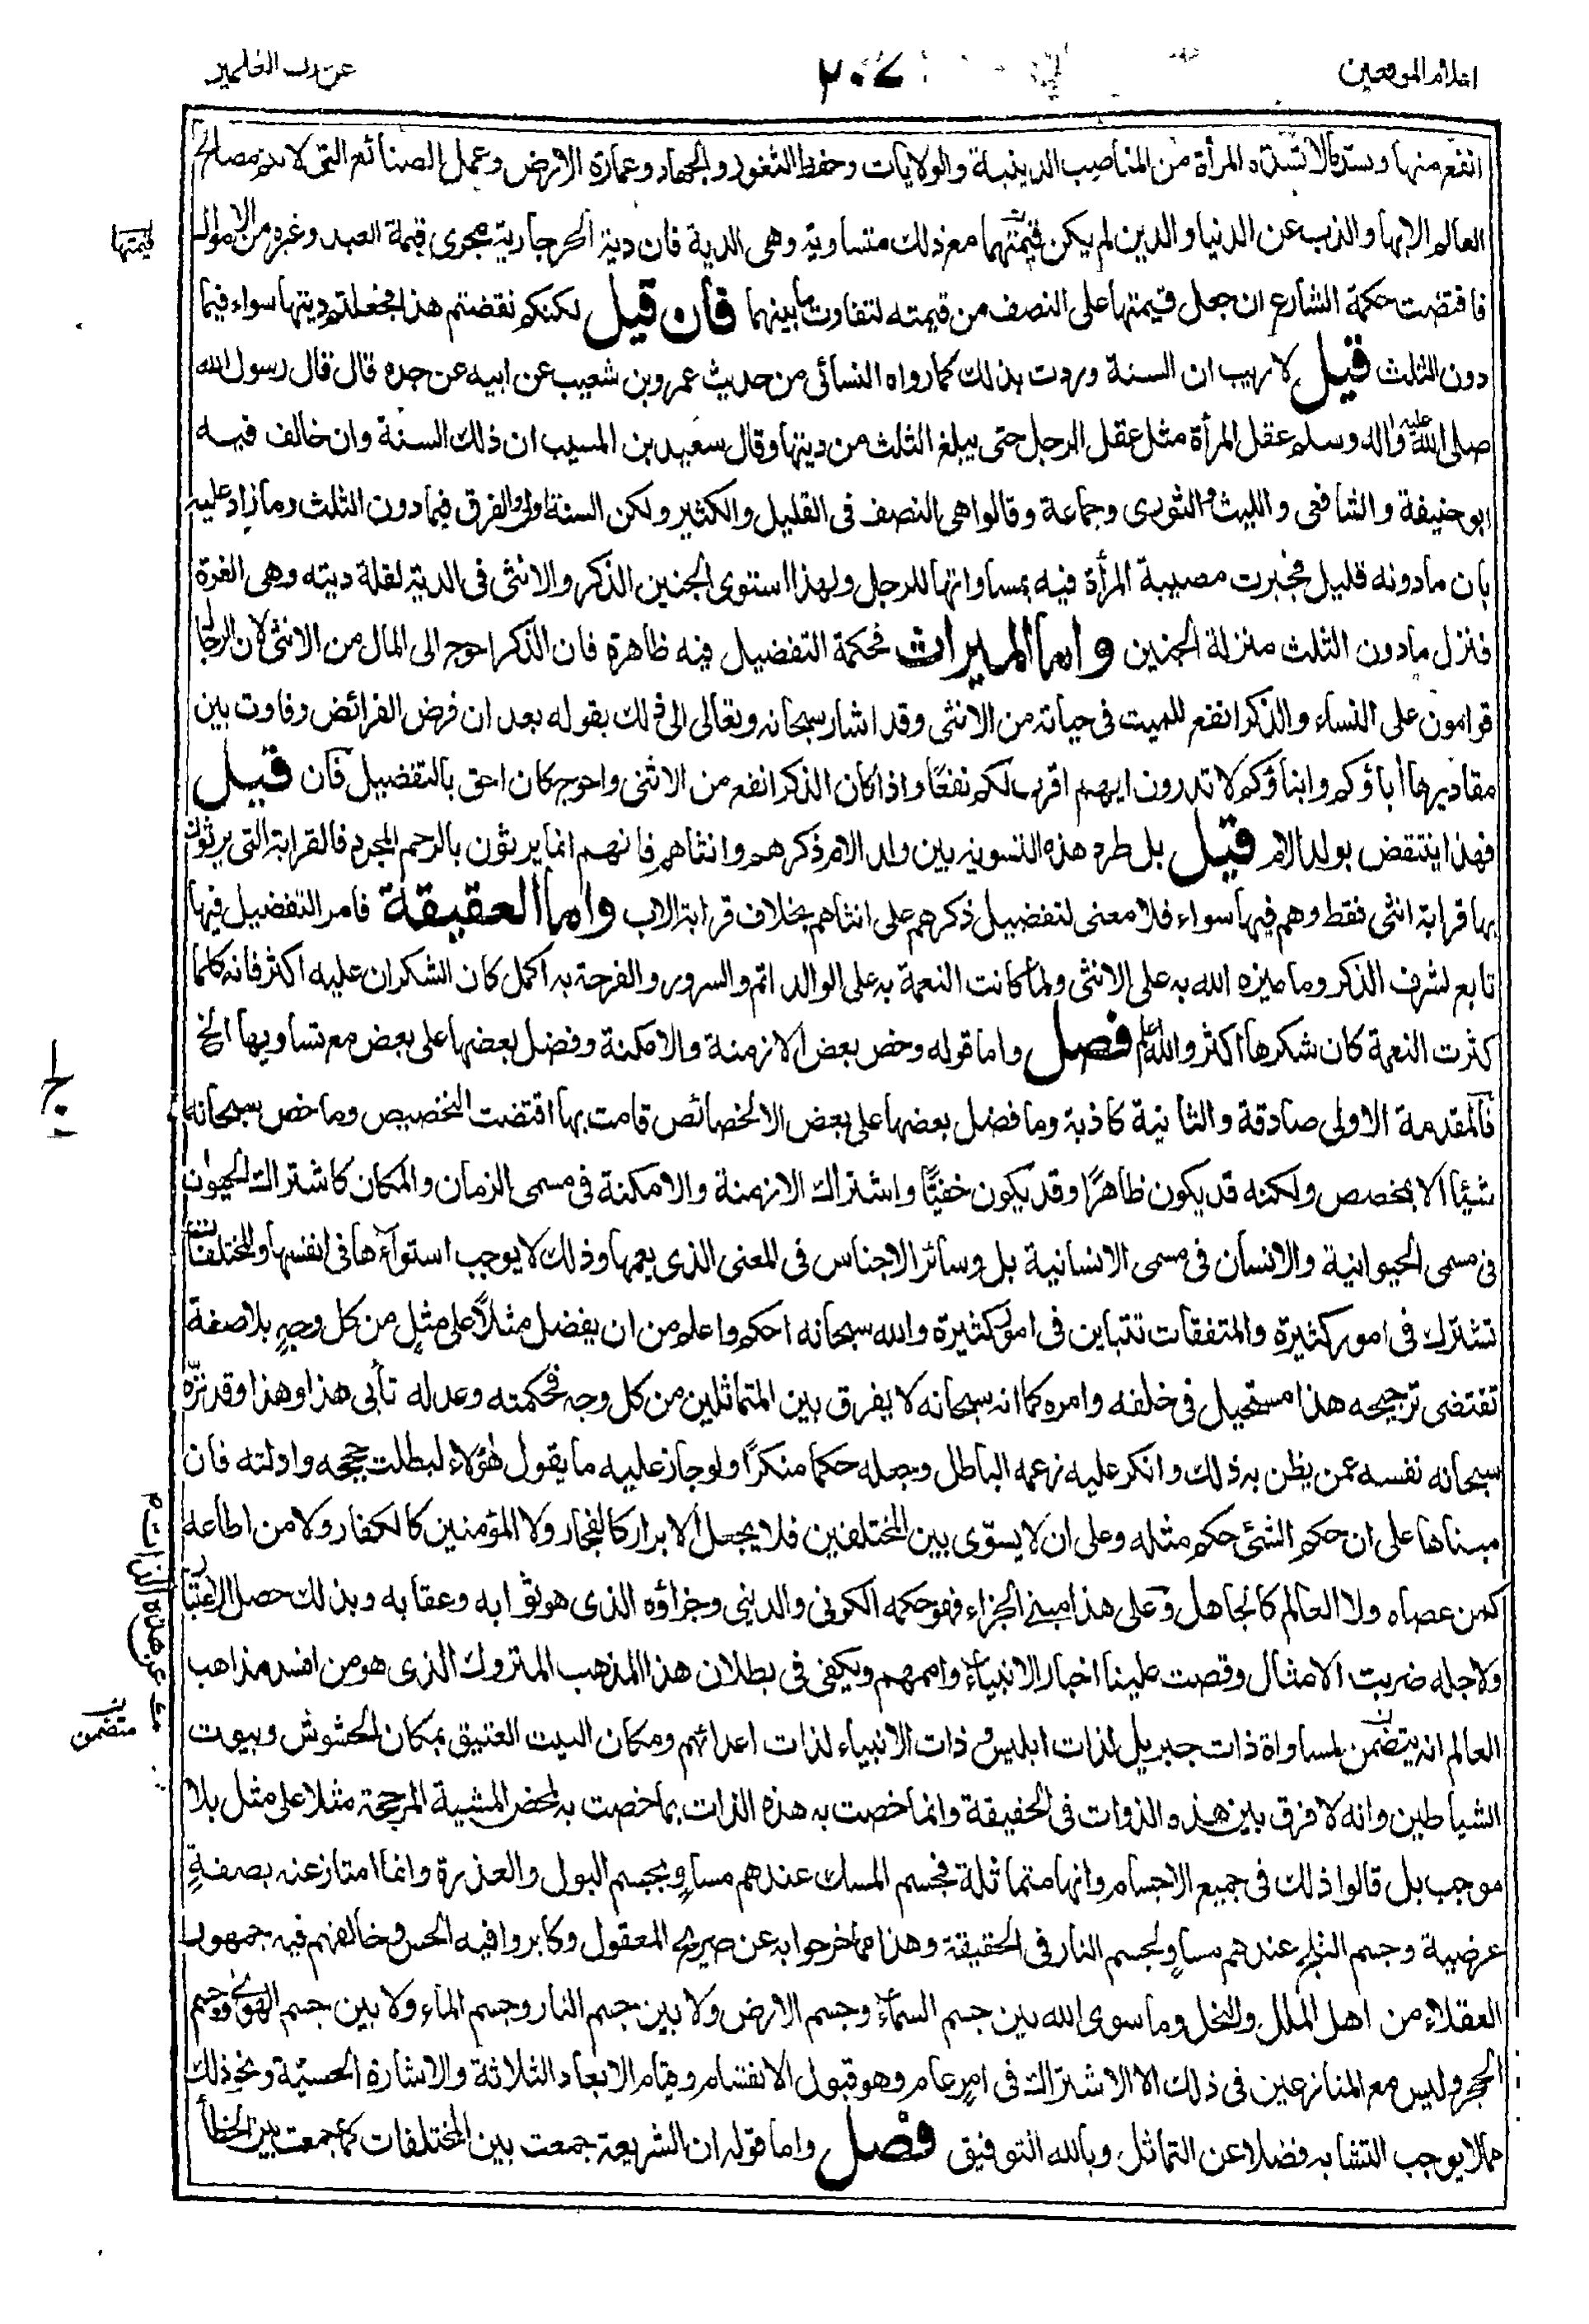 اعلام الموقعين
٢٠٧
عن رب العلمين
انفع منها ويسد مالا تسده المرأة من المناصب الدينية والولايات وحفظ الثغور والجهاد وعمارة الارض وعمل الصنائع التى لا تتم مصالح
العالم الا بها والذب عن الدنيا والدين لم يكن قيمتهما مع ذلك متساوية وهى الدية فان دية الحر جارية مجرى قيمة العبد وغيره من الاموال
قيمتها
فاقتضت حكمة الشارع ان جعل قيمتها على النصف من قيمته لتفاوت ما بينهما فان قيل لكنكم نقضتم هذا فجعلتم ديتهما سواء فيما
دون الثلث قيل لا ريب ان السنة وردت بذلك كما رواه النسائى من حديث عمرو بن شعيب عن ابيه عن جده قال قال رسول الله
صلى الله عليه واله وسلم عقل المرأة مثل عقل الرجل حتى يبلغ الثلث من ديتها وقال سعيد بن المسيب ان ذلك السنة وان خالف فيه
ابو حنيفة والشافعى والليث والثورى وجماعة وقالوا هى النصف فى القليل والكثير ولكن السنة اولى والفرق فيما دون الثلث وما زاد عليه
بان ما دونه قليل فجبرت مصيبة المرأة فيه بمساواتها للرجل ولهذا استوى الجنين الذكر والانثى فى الدية لقلة ديته وهى الغرة
فنزل ما دون الثلث منزلة الجنين واما الميراث فحكمة التفضيل فيه ظاهرة فان الذكر احوج الى المال من الانثى لان الرجال
قوامون على النساء والذكر انفع للميت فى حياته من الانثى وقد اشار سبحانه وتعالى الى ذلك بقوله بعد ان فرض الفرائض وفاوت بين
مقاديرها أباؤكم وابناؤكم لا تدرون ايهم اقرب لكم نفعًا واذا كان الذكر انفع من الانثى واحوج كان احق بالتفضيل فان قيل
فهذا ينتقض بولد الام قيل بل طرد هذه التسوية بين ولد الام ذكرهم وانثاهم فانهم انما يرثون بالرحم المجرد فالقرابة التى يرثون
بها قرابة انثى فقط وهم فيها سواء فلا معنى لتفضيل ذكرهم على انثاهم بخلاف قرابة الاب واما العقيقة فامر التفضيل فيها
تابع لشرف الذكر وما ميزه الله به على الانثى ولما كانت النعمة به على الوالد اتم والسرور والفرحة به اكمل كان الشكران عليه اكثر فانه كلما
كثرت النعمة كان شكرها اكثر والله اعلم فصل واما قوله وخص بعض الازمنة والامكنة وفضل بعضها على بعض مع تساويها الخ
فالمقدمة الاولى صادقة والثانية كاذبة وما فضل بعضها على بعض الا لخصائص قامت بها اقتضت التخصيص وما خص سبحانه
شيئا الا بمخصص ولكنه قد يكون ظاهرًا وقد يكون خفيًّا واشتراك الازمنة والامكنة فى مسمى الزمان والمكان كاشتراك الحيوان
فى مسمى الحيوانية والانسان فى مسمى الانسانية بل وسائر الاجناس فى المعنى الذى يعمها وذلك لا يوجب استواءها فى انفسها والمختلفات
تشترك فى امور كثيرة والمتفقات تتباين فى امور كثيرة والله سبحانه احكم واعلم من ان يفضل مثلًا على مثلٍ من كل وجهٍ بلا صفة
تقتضى ترجيحه هذا مستحيل فى خلقه وامره كما انه سبحانه لا يفرق بين المتماثلين من كل وجه فحكمته وعدله تأبى هذا وهذا وقد نزّه
سبحانه نفسه عمن يظن به ذلك وانكر عليه زعمه الباطل وجعله حكما منكرًا ولو جاز عليه ما يقول هؤلاء لبطلت حججه وادلته فان
مبناها على ان حكم الشئ حكم مثله وعلى ان لا يسوّى بين المختلفين فلا يجعل الابرار كالفجار ولا المؤمنين كالكفار ولا من اطاعه
كمن عصاه ولا العالم كالجاهل وعلى هذا مبنى الجزاء فهو حكمه الكونى والدينى وجزاؤه الذى هو ثوابه وعقابه وبذلك حصل الاعتبار
ولاجله ضربت الامثال وقصت علينا اخبار الانبياء واممهم ويكفى فى بطلان هذا المذهب المتروك الذى هو من افسد مذاهب
العالم انه يتضمن لمساواة ذات جبريل لذات ابليس وذات الانبياء لذات اعدائهم ومكان البيت العتيق بمكان الحشوش وبيوت
متضمن
الشياطين وانه لا فرق بين هذه الذوات فى الحقيقة وانما خصت به هذه الذات بما خصت به لمحض المشية المرجحة مثلا على مثل بلا
موجب بل قالوا ذلك فى جميع الاجسام وانها متماثلة فجسم المسك عندهم مساوٍ بجسم البول والعذرة وانما امتاز عنه بصفةٍ
عرضية وجسم الثلج عندهم مساوٍ لجسم النار فى الحقيقة وهذا مما خرجوا به عن صريح المعقول وكابروا فيه الحس وخالفهم فيه جمهور
العقلاء من اهل الملل والنحل وما سوى الله بين جسم السماء وجسم الارض ولا بين جسم النار وجسم الماء ولا بين جسم الهواء وجسم
الحجر وليس مع المنازعين فى ذلك الا الاشتراك فى امرٍ عام وهو قبول الانقسام وقيام الابعاد الثلاثة والاشارة الحسيّة ونحو ذلك
مما لا يوجب التشابه فضلا عن التماثل وبالله التوفيق فصل واما قوله ان الشريعة جمعت بين المختلفات كما جمعت بين الخطأ